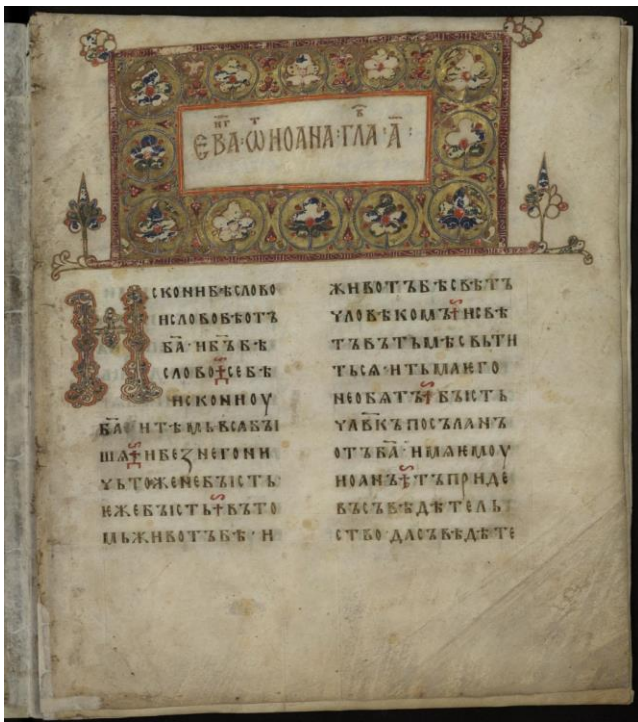 ЕВАНГ҃ · Ѿ ИОАНА · ГЛАВ҃ · А҃ :
ИСКОНИБѢСЛОВО
ИСЛОВОБѢОТЪ
Б҃А · ИБ҃ЪБѢ
СЛОВО ⁘ СЕБѢ
ИСКОНИОУ
Б҃А · ИТѢМЬВСАБꙐ
ШѦ ⁘ ИБЕꙀНЕГОНИ
ЧЬТОЖЕНЕБꙐСТЬ
ЕЖЕБꙐСТЬ ⁘ ВЪТО
МЬЖИВОТЪБѢ · И
ЖИВОТЪБѢСВѢТЪ
ЧЛОВѢКОМЪ ⁘ ИСВѢ
ТЪВЪТЬМѢСВЬТИ
ТЬСѦ · ИТЬМАЕГО
НЕОБѦТЪ ⁘ БꙐСТЬ
ЧЛ҃ВКЪПОСЪЛАНЪ
ОТЪБ҃А · ИМѦЕМОУ
ИОАНЪ ⁘ ТЪПРИДЕ
ВЪСЪВѢДѢТЕЛЬ
СТВО · ДАСЪВѢДѢТЕ